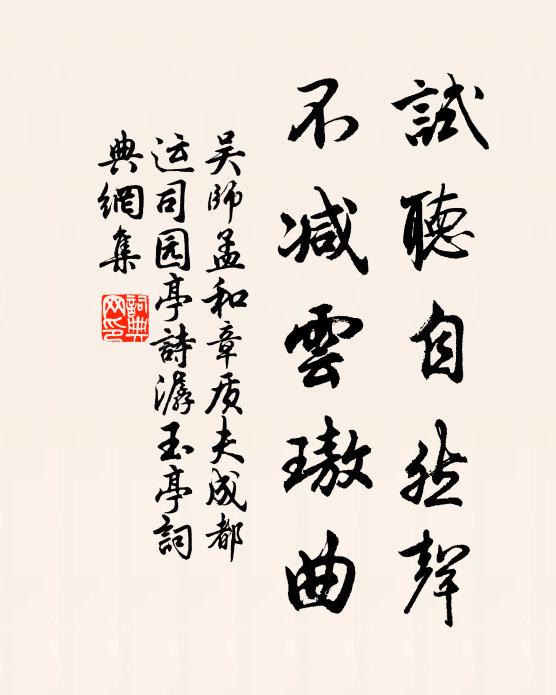 試聽自然聲
不減雲璈曲
吴師孟和章质夫成都
运司园亭詩潺玉亭詞
典網集
詞典网印